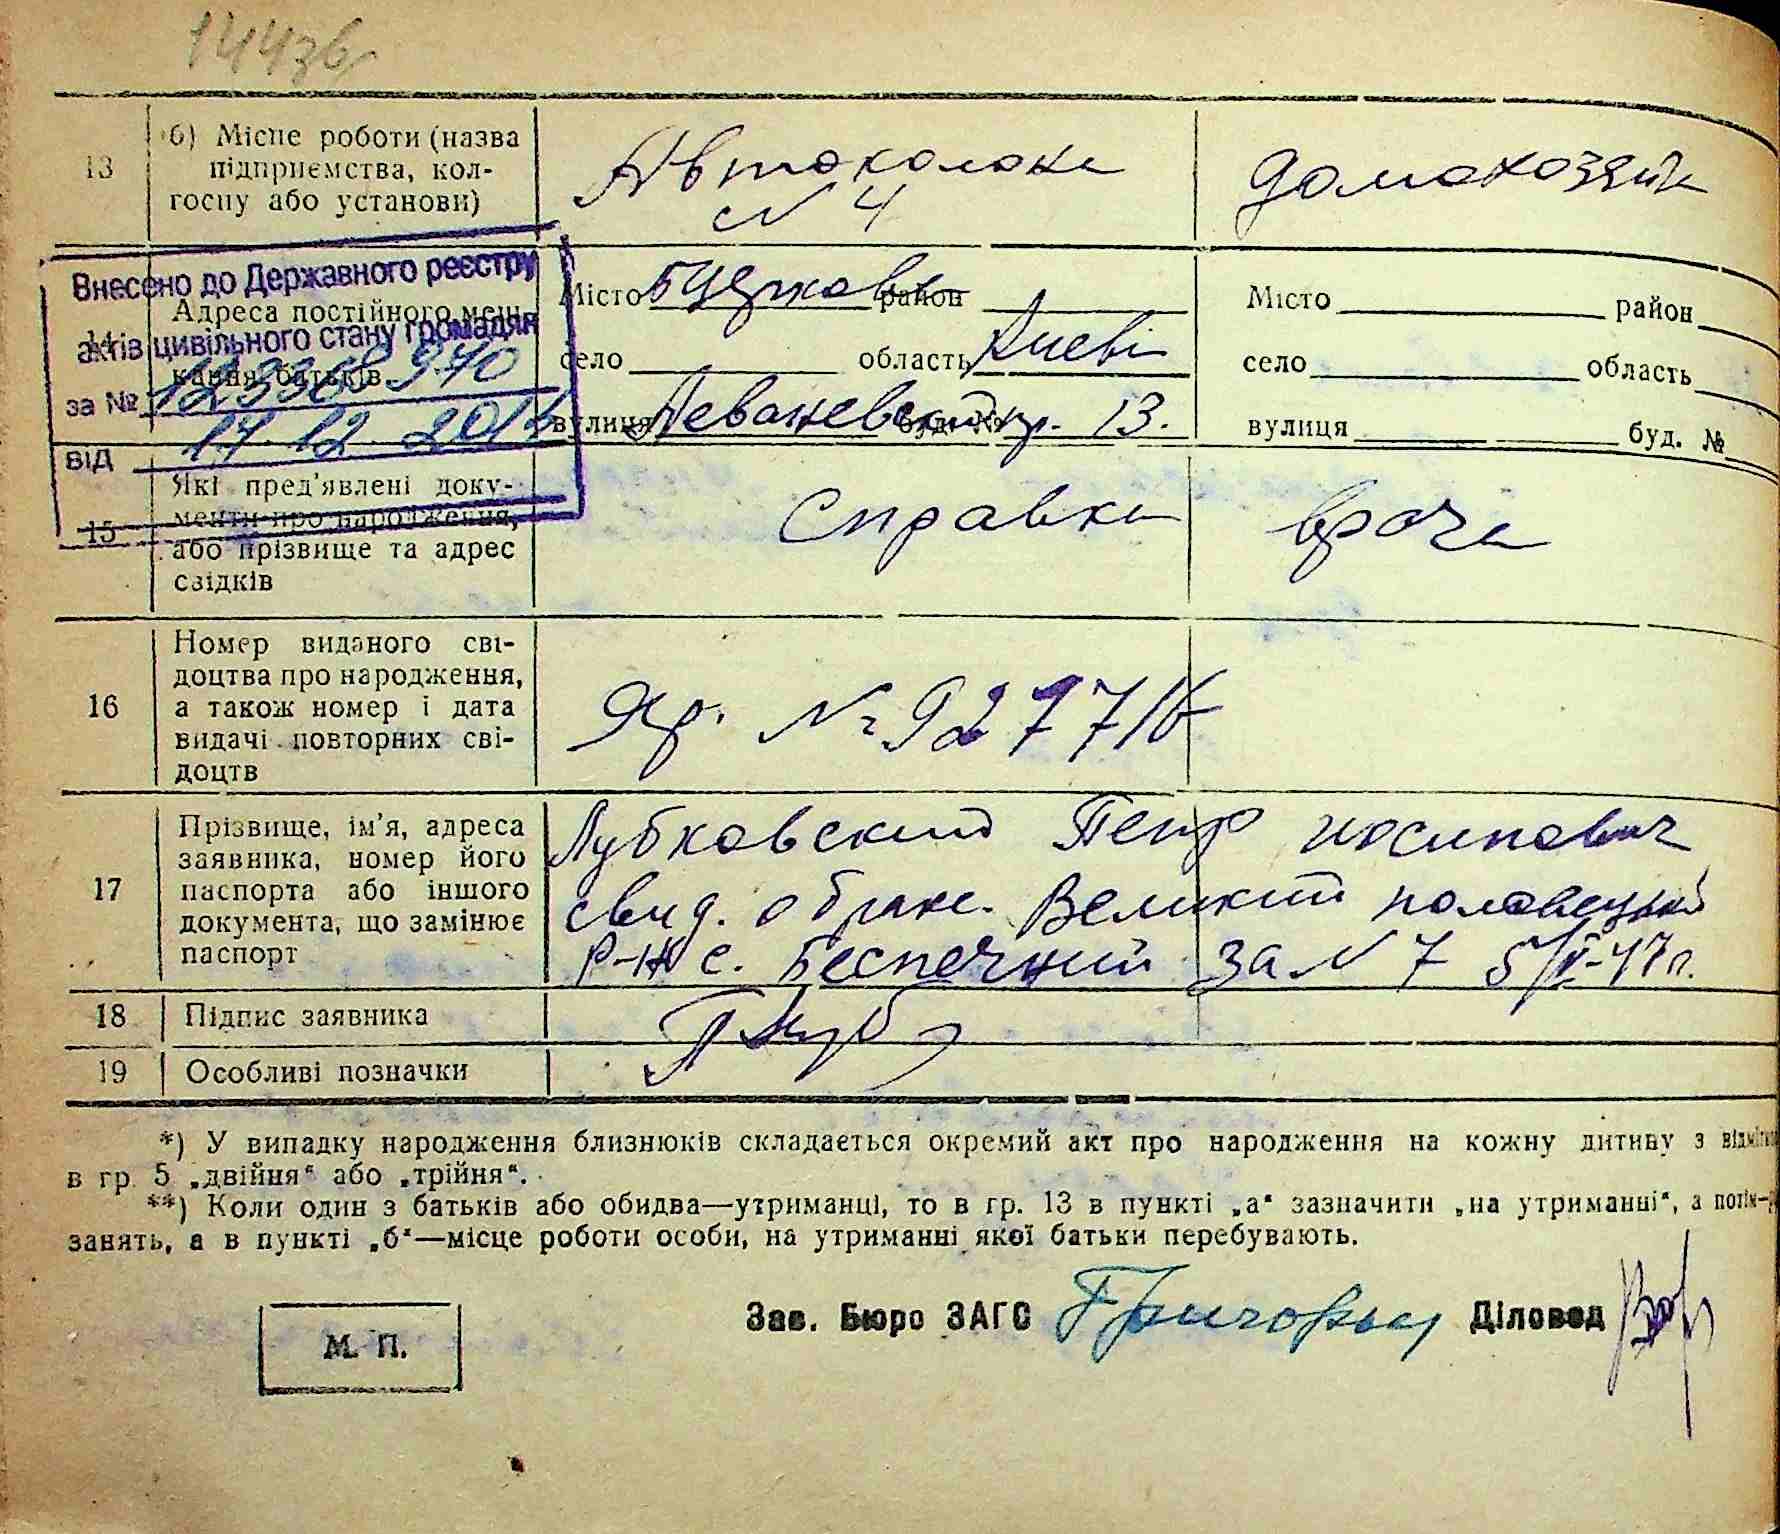 144зв
13
б) Місце роботи (назва
підприємства, кол-
госпу або установи)
Автоколона
N 4
домохозяйка
Внесено до Державного реєстру
актів цивільного стану громадян
за №
від 17.12.2012
14
Адреса постійного меш-
кання батьків
Місто Б Церковь район
село область Киев
вулиця Леваневский буд. № пр. 13.
Місто район
село область
вулиця буд. №
15
Які пред'явлені доку-
менти про народження,
або прізвище та адрес
свідків
Справка врача
16
Номер виданого сві-
доцтва про народження,
а також номер і дата
видачі повторних сві-
доцтв
№ 92771
17
Прізвище, ім'я, адреса
заявника, номер його
паспорта або іншого
документа, що замінює
паспорт
Лубковский Петр иосипович
свид. о браке. Великий половецький
р-н с. Беспечний за N 7 5/V-47 г.
18
Підпис заявника
П Луб
19
Особливі позначки
*) У випадку народження близнюків складається окремий акт про народження на кожну дитину з
в гр. 5 „двійня“ або „трійня“.
**) Коли один з батьків або обидва—утриманці, то в гр. 13 в пункті „а“ зазначити „на утриманні“, а потім—
занять, а в пункті „б“—місце роботи особи, на утриманні якої батьки перебувають.
М. П.
Зав. Бюро ЗАГС
Діловод